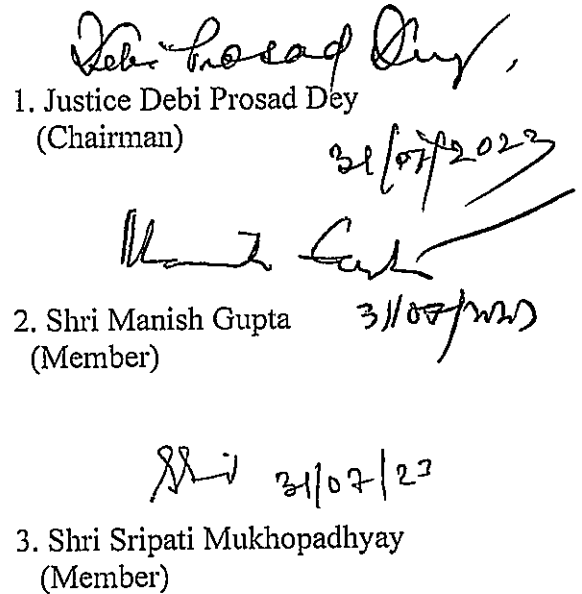 Debi Prosad Dey.
1. Justice Debi Prosad Dey
(Chairman)
31/07/2023
Manish Gupta
2. Shri Manish Gupta
31/07/2023
(Member)
31/07/23
3. Shri Sripati Mukhopadhyay
(Member)